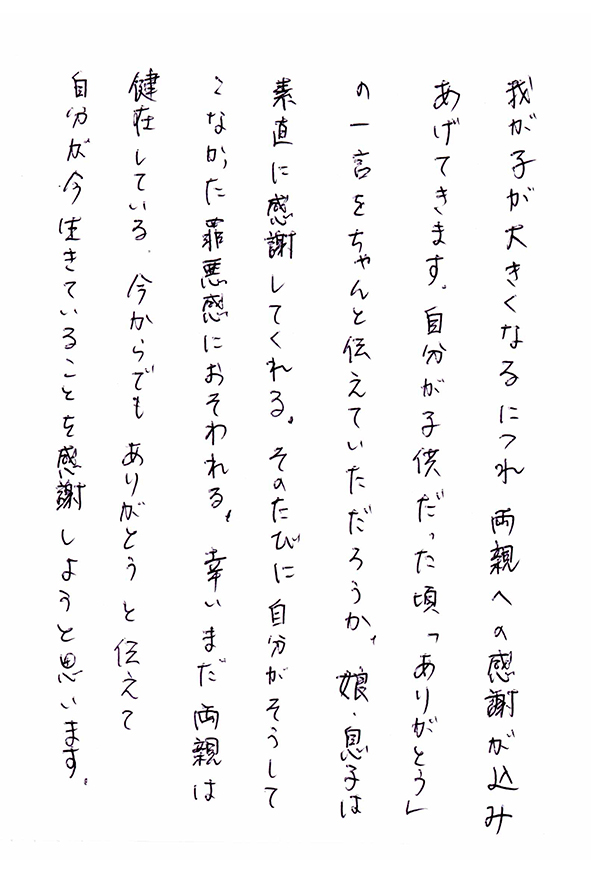 我が子が大きくなるにつれ 両親への感謝が込み
あげてきます。自分が子供だった頃「ありがとう」
の一言をちゃんと伝えていただろうか。娘・息子は
素直に感謝してくれる。そのたびに自分がそうして
こなかった罪悪感におそわれる。幸いまだ両親は
健在している。今からでも ありがとう と伝えて
自分が今生きていることを感謝しようと思います。